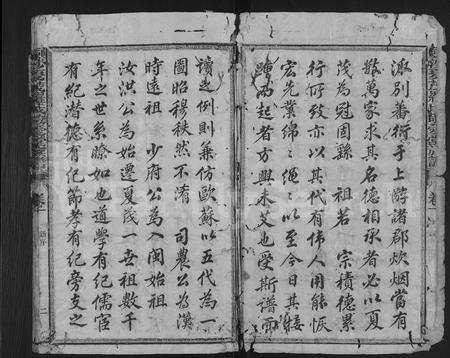 派別蕃衍于上游諸郡炊烟當有
數萬家求其名德相承者必以夏
茂為冠因縣 祖若 宗積德累
行所致亦以其代有偉人用能恢
宏先業綿綿繩繩以至今日其接
踵而起者方興未艾也受斯譜而
讀之例則兼仿歐蘇以五代為一
圖昭穆秩然不淆 司農公為漢
時遠祖 少府公為入閩始祖
汝洪公為始遷夏茂一世祖數千
年之世系瞭如也道學有紀儒宦
有紀潛德有紀節孝有紀旁支之